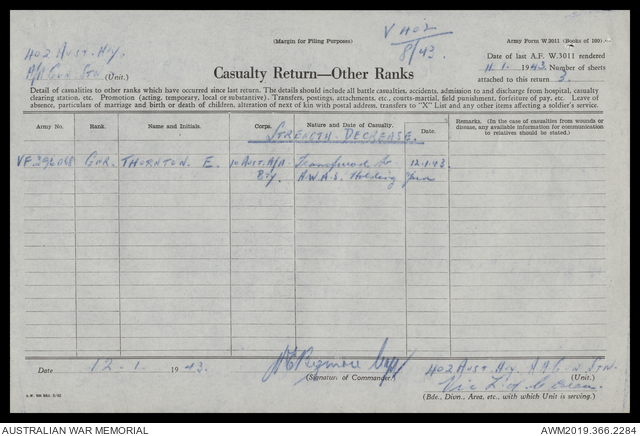 V 402
8/43.
(Margin for Filing Purposes)
Army Form W.3011 (Books of 100)
402 Aust. Hvy.
A/A Gun Stn. (Unit.)
Date of last A.F. W.3011 rendered
11. 1. 1943. Number of sheets
attached to this return 3.
Casualty Return—Other Ranks
Detail of casualties to other ranks which have occurred since last return. The details should include all battle casualties, accidents, admission to and discharge from hospital, casualty
clearing station, etc. Promotion (acting, temporary, local or substantive). Transfers, postings, attachments, etc., courts-martial, field punishment, forfeiture of pay, etc. Leave of
absence, particulars of marriage and birth or death of children, alteration of next of kin with postal address, transfers to "X" List and any other items affecting a soldier's service.
Army No. Rank. Name and Initials. Corps. Nature and Date of Casualty. Date. Remarks. (In the case of casualties from wounds or
disease, any available information for communication
to relatives should be stated.)
Strength Decrease.
VF396068 Gnr. Thornton. E. 10 Aust. A/A Transferred to 12.1.43.
Bty. A.W.A.S. Holding
Date 12. 1. 1943.
(Signature of Commander) 402 Aust. Hvy. A/A Gun Stn.
(Unit.)
Vic L of C
(Bde., Dion., Area, etc., with which Unit is serving.)
AUSTRALIAN WAR MEMORIAL
AWM2019.366.2284